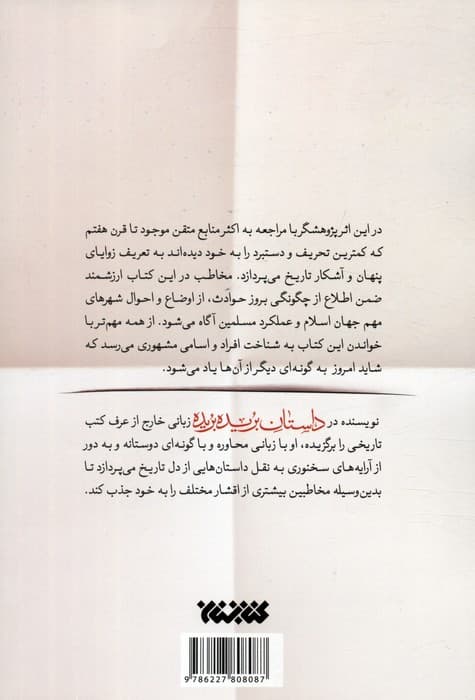 در این اثر پژوهشگر با مراجعه به اکثر منابع متقن موجود تا قرن هفتم
که کمترین تحریف و دستبرد را به خود دیده‌اند به تعریف زوایای
پنهان و آشکار تاریخ می‌پردازد. مخاطب در این کتاب ارزشمند
ضمن اطلاع از چگونگی بروز حوادث، از اوضاع و احوال شهرهای
مهم جهان اسلام و عملکرد مسلمین آگاه می‌شود. از همه مهم‌تر با
خواندن این کتاب به شناخت افراد و اسامی مشهوری می‌رسد که
شاید امروز به گونه‌ای دیگر از آن‌ها یاد می‌شود.
نویسنده در داستان بریده بریده زبانی خارج از عرف کتب
تاریخی را برگزیده، او با زبانی محاوره و با گونه‌ای دوستانه و به دور
از آرایه‌های سخنوری به نقل داستان‌هایی از دل تاریخ می‌پردازد تا
بدین‌وسیله مخاطبین بیشتری از اقشار مختلف را به خود جذب کند.
کتابستان
9 786227 808087